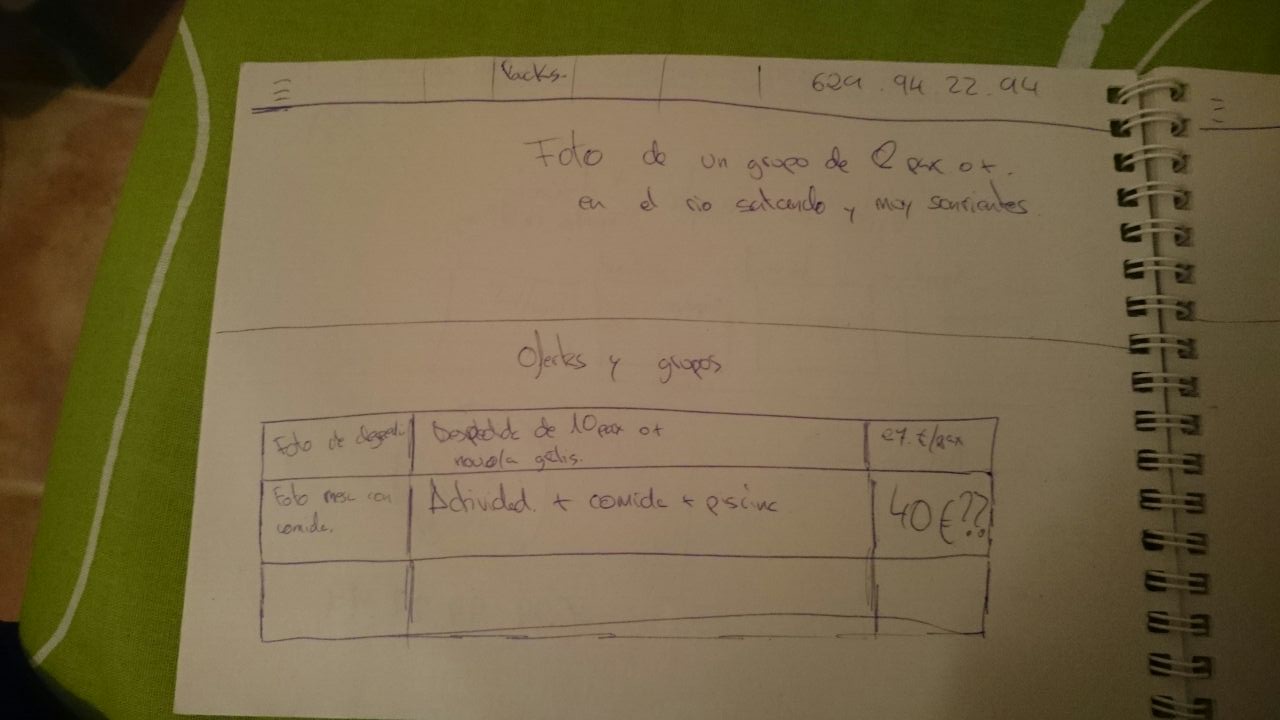 Packs.
629.94.22.94
Foto de un grupo de 2 pax o +.
en el rio saltando y muy sonrientes
Ofertas y grupos
Foto de despedi.
Despedida de 10 pax o +
novio/a gratis.
27.€/pax
Foto mesa con
comida.
Actividad + comida + piscina
40€??